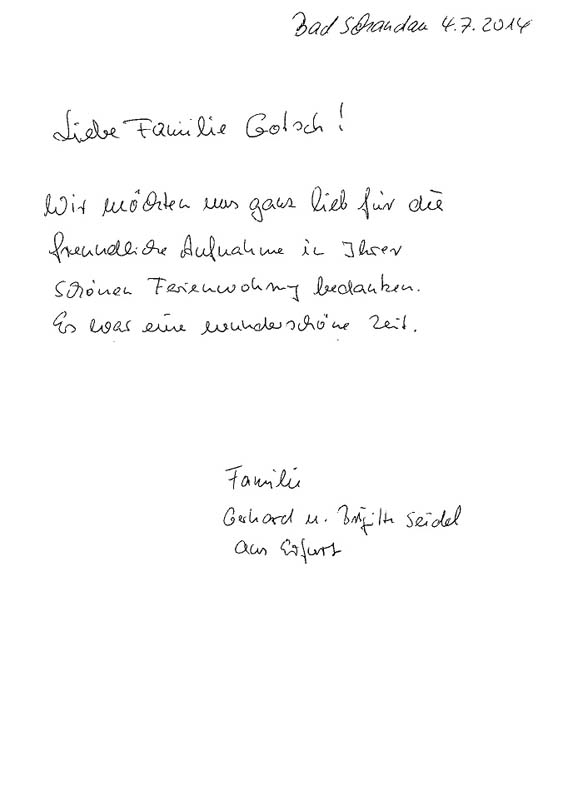 Bad Schandau 4.7.2014
Liebe Familie Gotsch!
Wir möchten uns ganz lieb für die
freundliche Aufnahme in Ihrer
schönen Ferienwohnung bedanken.
Es war eine wunderschöne Zeit.
Familie
Gerhard u. Brigitte Seidel
aus Erfurt